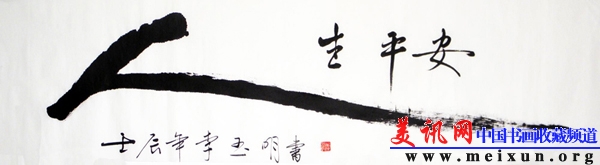 人生平安
壬辰年李玉明書
美讯网中国书画收藏频道
www.meixun.org